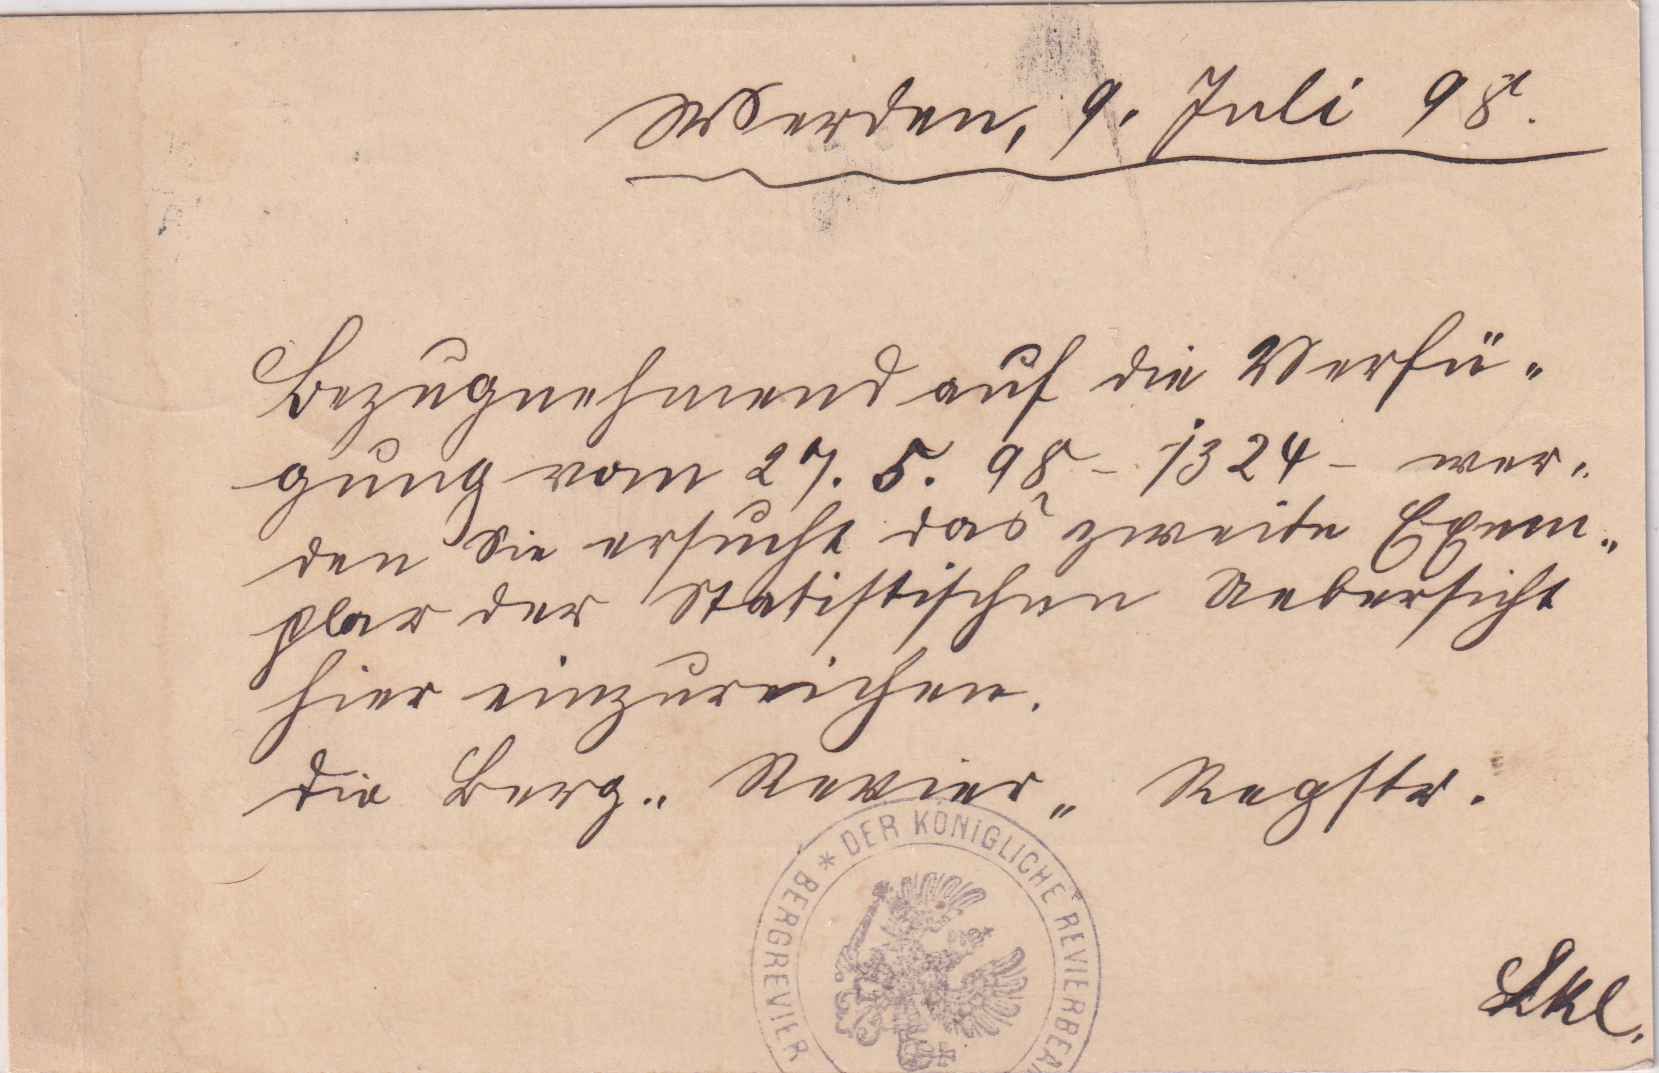 Werden, 9. Juli 98.
Bezugnehmend auf die Verfü-
gung vom 27. 5. 98 - 1324 - wer-
den Sie ersucht das zweite Exem-
plar der Statistischen Uebersicht
hier einzureichen.
Die Berg- Revier- Regstr.
* DER KÖNIGLICHE REVIERBEAM
BERGREVIER